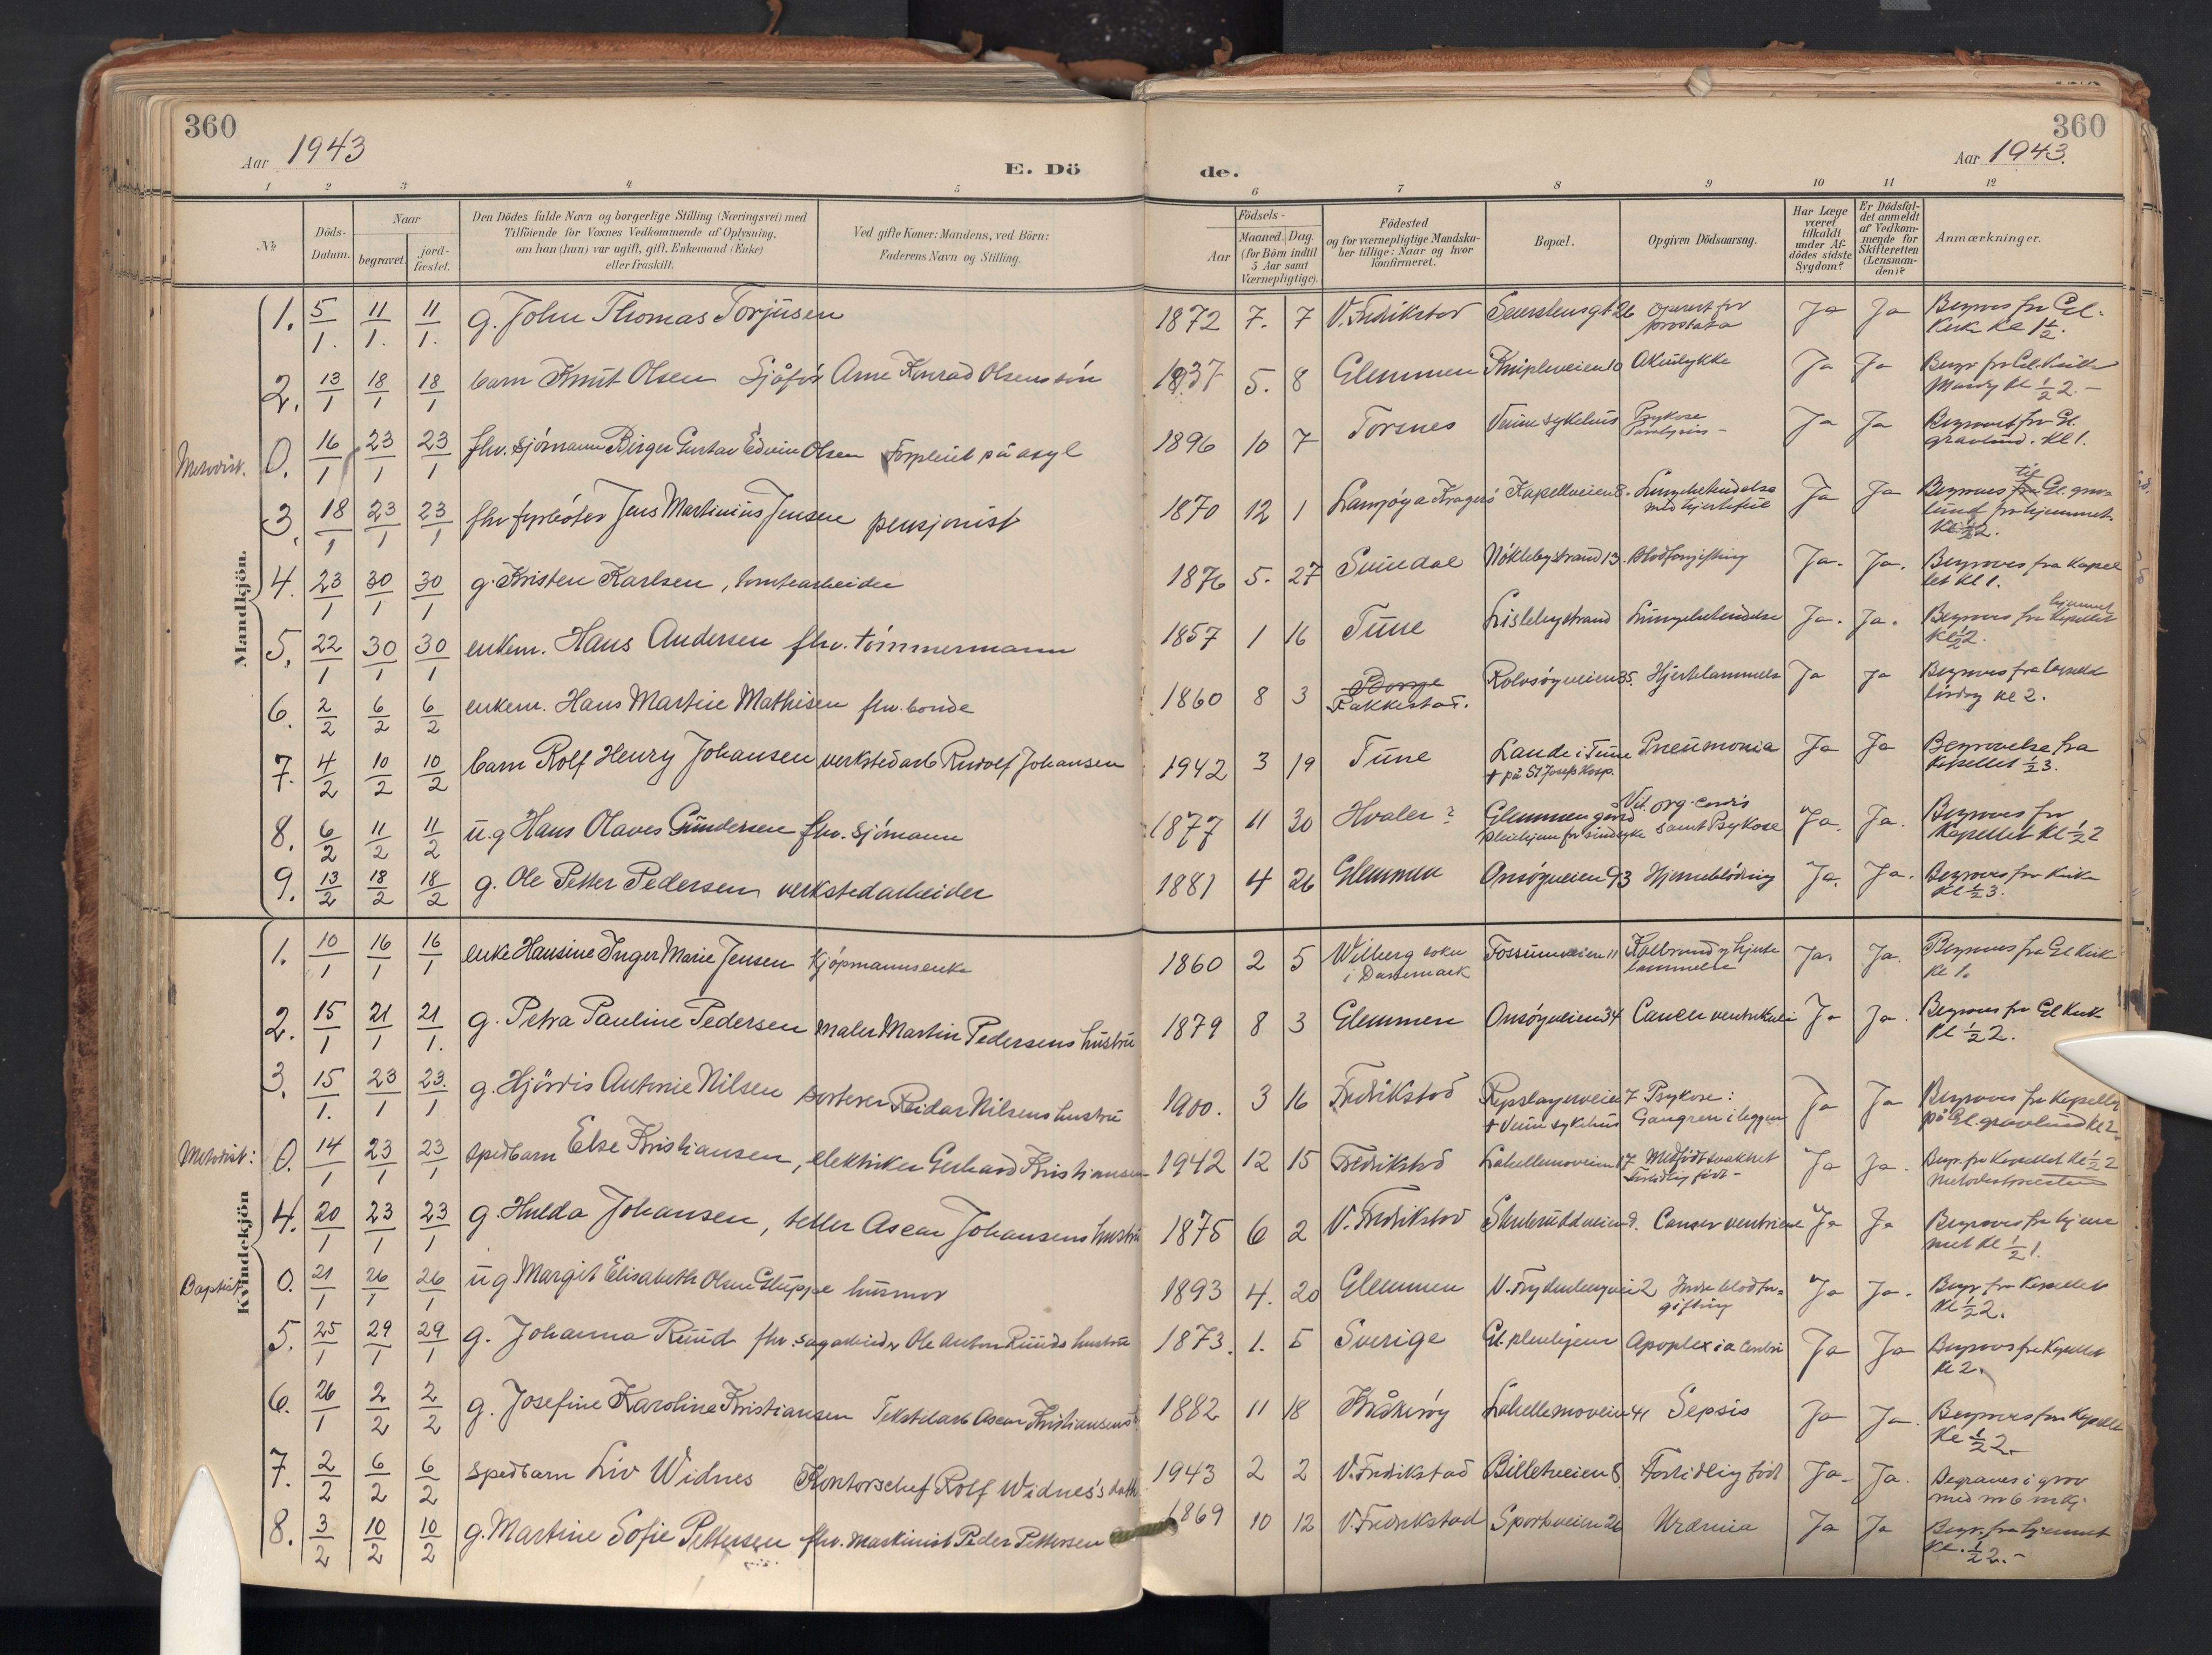 360
360
Aar 1943
Aar 1943.
E. Dö
de.
1 2 3 4 5 6 7 8 9 10 11 12
№
Döds-
Datum.
Naar
begravet.
jord-
fæstet.
Den Dödes fulde Navn og borgerlige Stilling (Næringsvei) med
Tilföiende for Voxnes Vedkommende af Oplysning,
om han (hun) var ugift, gift, Enkemand (Enke)
eller fraskilt.
Ved gifte Koner: Mandens, ved Börn:
Faderens Navn og Stilling.
Födsels-
Aar
Maaned. Dag.
(for Börn indtil
5 Aar samt
Værnepligtige).
Födested
og for værnepligtige Mandska-
ber tillige: Naar og hvor
konfirmeret.
Bopæl.
Opgiven Dödsaarsag.
Har Læge
været
tilkaldt
under Af-
dödes sidste
Sygdom?
Er Dödsfal-
det anmeldt
af Vedkom-
mende for
Skifteretten
(Lensman-
den)?
Anmærkninger.
Mandkjön.
1. 5/1. 11/1. 11/1. g. John Thomas Torjusen 1872 7. 7 V. Fredrikstad 26 Operert for Ja Ja
prostata
Kirke Kl 1 1/2.
2. 13/1 18/1 18/1 barn Knut Olsen Sjåfør Arne Konrad Olsens sön 1937 5. 8 Glemmen Knipleveien 10 Ulykke Ja Ja
Kl 1/2 2.-
Metodist. 0. 16/1 23/1 23/1 fhv. sjømann Birger Gustav Edvin Olsen Forpleiet på asyl 1896 10 7 Torsnes Veum sykehus Psykose Ja Ja
gravlund. Kl 1.
3. 18/1 23/1 23/1 fhv fyrbøter Jens Martinius Jensen pensjonist 1870 12 1 Langøya Kragerö Kapellveien 8. Lungebetendelse Ja Ja Begraves fra til Gl. grav-
med hjertefeil lund fra hjemmet
Kl 1/2 2.
4. 23/1 30/1 30/1 g. Kristen Karlsen, tomtearbeider 1876 5. 27 Svindal Nöklebystrand 13. Blodforgiftning Ja. Ja. Begraves fra Kapel
let Kl 1.
5. 22/1 30/1 30/1 enkem. Hans Andersen fhv. tömmermann 1857 1 16 Tune Lislebystrand Lungebetendelse Ja. Ja. Begraves fra Kapellet hjemmet
Kl 1/2 2.
6. 2/2 6/2 6/2 enkem. Hans Martin Mathisen fhv. bonde 1860 8 3 Borge Rolvsöyveien 35. Hjertelammelse Ja Ja
Rakkestad. kl 2.
7. 4/2 10/2 10/2 barn Rolf Henry Johansen verkstedarb Rudolf Johansen 1942 3 19 Tune Lande i Tune Pneumonia Ja Ja Begravelse fra
+ på St Josefs Hosp. Kapellet 1/2 3.
8. 6/2 11/2 11/2 u.g Hans Olaves Gundersen fhv. sjömann 1877 11 30 Hvaler? Glemmen gård Vit. org. cordis Ja. Ja. Begraves fra
pleiehjem for sindsyke samt Psykose Kapellet Kl 1/2 2
9. 13/2 18/2 18/2 g. Ole Petter Pedersen verkstedarbeider 1881 4 26 Glemmen Onsöyveien 93 Hjerneblödning Ja. Ja. Begraves fra Kirke
kl 1/2 3.
Kvindekjön
1. 10/1 16/1 16/1 enke Hansine Inger Marie Jensen kjöpmannsenke 1860 2 5 Wilberg sokn Fossumveien 11 Koldbrand og hjerte Ja. Ja. Begraves fra Gl Kirke
i Danemark lammelse Kl 1.
2. 15/1 21/1 21/1. g. Petra Pauline Pedersen maler Martin Pedersens hustru 1879 8 3 Glemmen Onsöyveien 34 Cancer ventrikuli Ja Ja. Begraves fra Gl Kirke
Kl 1/2 2.
3. 15/1. 23/1 23./1 g. Hjördis Antonie Nilsen sorterer Reidar Nilsens hustru 1900. 3 16 Fredrikstad Repslagerveien 7 Psykose: Ja Ja Begraves fra Kapellet
+ Veum sykehus Gangren i leggen på Gl. gravlund kl 2.
Metodist: 0. 14/1 23/1 23/1 spedbarn Else Kristiansen, elektriker Gerhard Kristiansen 1942 12 15 Fredrikstad Lahellemoveien 17 Medfödt svakhet Ja Ja. Begr. fra Kapellet kl 1/2 2
For tidlig födt - Metodistpresten
4. 20/1 23/1 23/1 g. Hulda Johansen, teller Oscar Johansens hustru 1875 6 2 V. Fredrikstad Canser Ja Ja Begraves fra hjem
met kl 1/2 1.
Baptist. 0. 21/1 26/1 26/1 ug Margit Elisabeth Olsen Gluppe husmor 1893 4. 20 Glemmen V. Frydenbergvei 2 Indre blodfor- Ja Ja. Begr. fra Kapellet
giftning Kl 1/2 2.
5. 25/1 29/1 29/1 g. Johanna Ruud fhv. sagarbeider Ole Anton Ruuds hustru 1873. 1. 5 Sverige Gl. pleiehjem Apoplexia Ja Ja Begraves fra Kapellet
Kl 2.
6. 26/1 2/2 2/2 g. Josefine Karoline Kristiansen Tekstilarb Oscar Kristiansens 1882 11 18 Kråkeröy Lahellemoveien 41 Sepsis Ja Ja. Begraves fra Kapellet
Kl 1/2 2.-
7. 2/2 6/2 6/2 spedbarn Liv Widnes Kontorschef Rolf Widnes's dath 1943 2 2 V. Fredrikstad Billetveien 8 For tidlig födt Ja- Ja. Begraves i grav
med nr 6 mkj.
8. 3/2 10/2 10/2 g. Martine Sofie Pettersen fhv. maskinist Peder Pettersen 1869 10 12 V. Fredrikstad Sportsveien 26 Uræmia Ja Ja Begr. fra hjemmet
Kl. 1/2 2.-